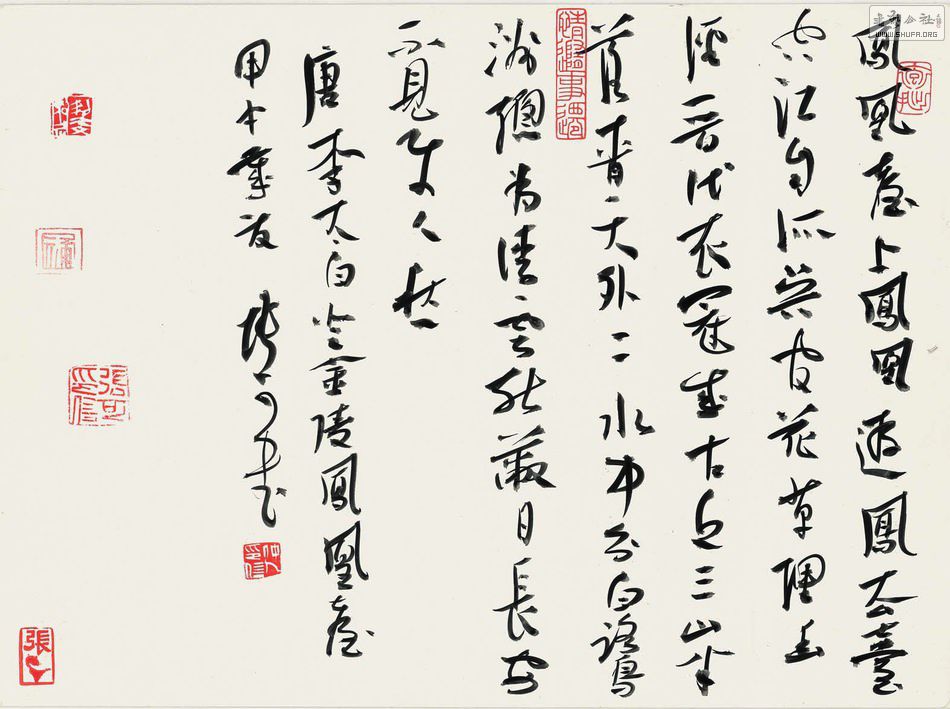 鳳凰臺上鳳凰遊鳳去臺
空江自流吳宮花草埋幽
徑晉代衣冠成古丘三山半
落青天外二水中分白鷺
洲總為浮雲能蔽日長安
不見使人愁
唐李太白登金陵鳳凰臺
甲午 張可書
張可印信
張
书法公社
WWW.SHUFA.ORG